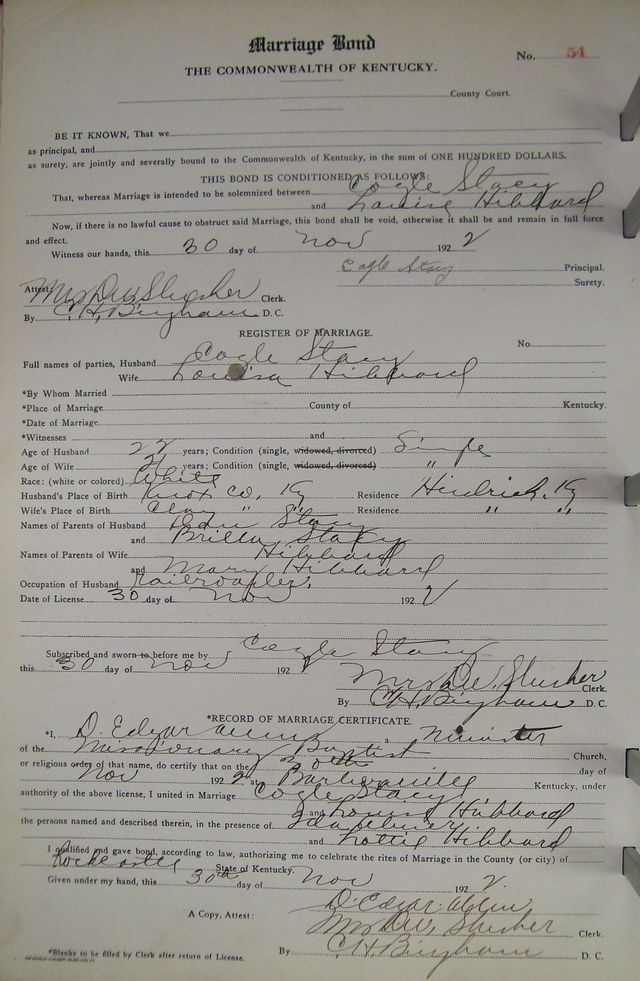 Marriage Bond
No. 54
THE COMMONWEALTH OF KENTUCKY.
County Court.
BE IT KNOWN, That we
as principal, and
as surety, are jointly and severally bound to the Commonwealth of Kentucky, in the sum of ONE HUNDRED DOLLARS.
THIS BOND IS CONDITIONED AS FOLLOWS:
That, whereas Marriage is intended to be solemnized between Cogle Stacy
and Louise Hibbard
Now, if there is no lawful cause to obstruct said Marriage, this bond shall be void, otherwise it shall be and remain in full force
and effect.
Witness our hands, this 30 day of Nov 1922
Cogle Stacy Principal.
Surety.
Attest: Mrs D W Slusher Clerk.
By C. H. Bingham D. C.
REGISTER OF MARRIAGE.
No.
Full names of parties, Husband Cogle Stacy
Wife Louisa Hibbard
*By Whom Married
*Place of Marriage County of Kentucky.
*Date of Marriage
*Witnesses and
Age of Husband 22 years; Condition (single, widowed, divorced) Single
Age of Wife 21 years; Condition (single, widowed, divorced) "
Race: (white or colored) White
Husband's Place of Birth Knox Co, Ky Residence Ky
Wife's Place of Birth Clay " " Residence " "
Names of Parents of Husband Stacy
and Stacy
Names of Parents of Wife Hibbard
and Mary Hibbard
Occupation of Husband
Date of License 30 day of Nov 1922
Subscribed and sworn to before me by Cogle Stacy
this 30 day of Nov 1922
Mrs D W. Slusher Clerk.
By C H Bingham D. C.
*RECORD OF MARRIAGE CERTIFICATE.
*I, D. Edgar a Minister
of the Missionary Baptist Church,
or religious order of that name, do certify that on the 30th day of
Nov 1922, at Barbourville Kentucky, under
authority of the above license, I united in Marriage Cogle Stacy
and Hubbard
the persons named and described therein, in the presence of
and Lottie Hibbard
I qualified and gave bond, according to law, authorizing me to celebrate the rites of Marriage in the County (or city) of
Rockcastle State of Kentucky.
Given under my hand, this 30th day of Nov 1922.
D. Edgar
A Copy, Attest: Mrs D W Slusher Clerk.
By C. H. Bingham D. C.
*Blanks to be filled by Clerk after return of License.